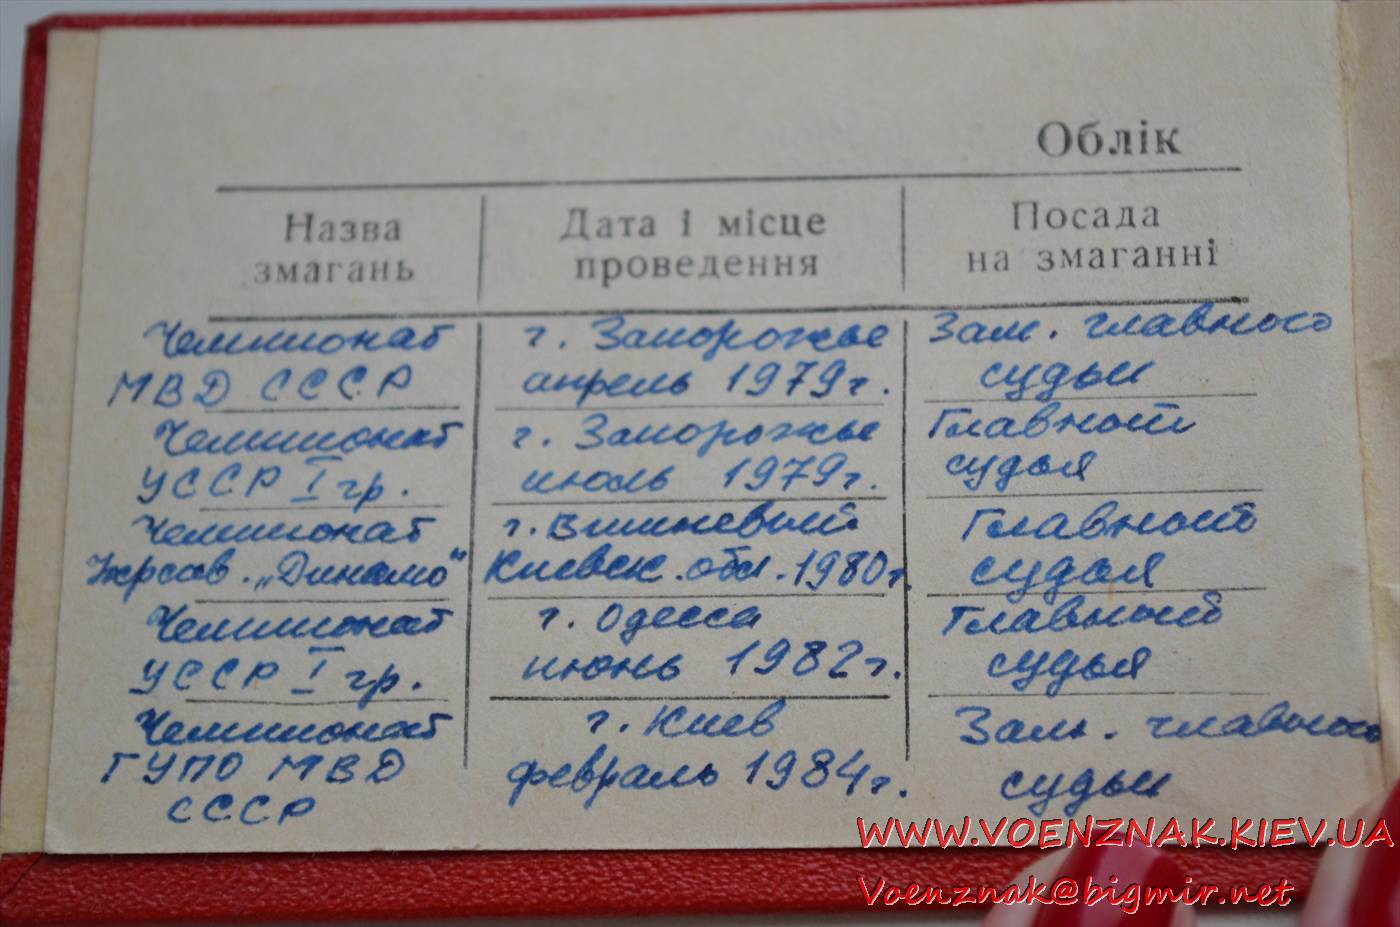 Облік
Назва змагань
Дата і місце проведення
Посада на змаганні
Чемпионат МВД СССР
г. Запорожье апрель 1979г.
Зам. главного судьи
Чемпионат УССР I гр.
г. Запорожье июль 1979г.
Главный судья
Чемпионат Укрсов. „Динамо“
г. Вишневый Киевск. обл. 1980г.
Главный судья
Чемпионат УССР I гр.
г. Одесса июнь 1982г.
Главный судья
Чемпионат ГУПО МВД СССР
г. Киев февраль 1984г.
Зам. главного судьи
WWW.VOENZNAK.KIEV.UA
Voenznak@bigmir.net